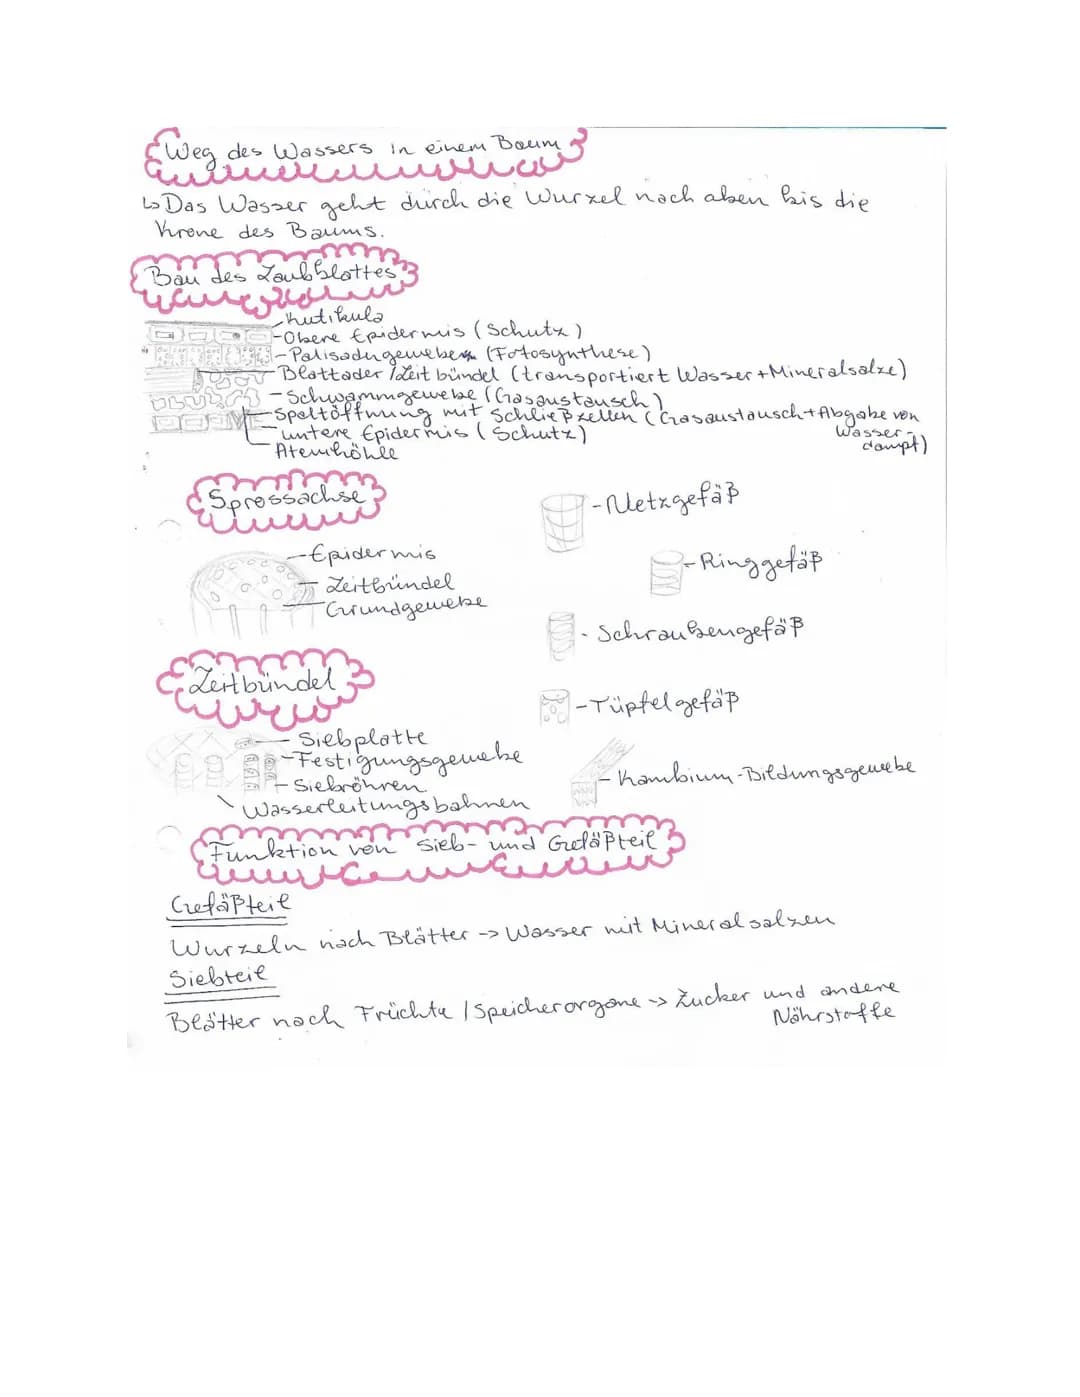 Weg des Wassers in einem Baum
↳ Das Wasser geht durch die Wurzel nach oben bis die
Krone des Baums.
Bau des Laubblattes
-Kutikula
-Obere Epidermis (Schutz)
-Palisadengewebe (Fotosynthese)
-Blattader /Leitbündel (transportiert Wasser+Mineralsalze)
-Schwammgewebe (Gasaustausch)
-Spaltöffnung mit Schließzellen (Gasaustausch+Abgabe von
Wasser-
dampf)
untere Epidermis (Schutz)
Atemhöhle
Sprossachse
-Epidermis
-Leitbündel
-Grundgewebe
-Netzgefäß
-Ringgefäß
-Schraubengefäß
-Tüpfelgefäß
-Kambium-Bildungsgewebe
Leitbündel
-Siebplatte
-Festigungsgewebe
-Siebröhren
Wasserleitungsbahnen
Funktion von Sieb- und Gefäßteil
Gefäßteil
Wurzeln nach Blätter -> Wasser mit Mineralsalzen
Siebteil
Blätter nach Früchte / Speicherorgane -> Zucker und andere
Nährstoffe